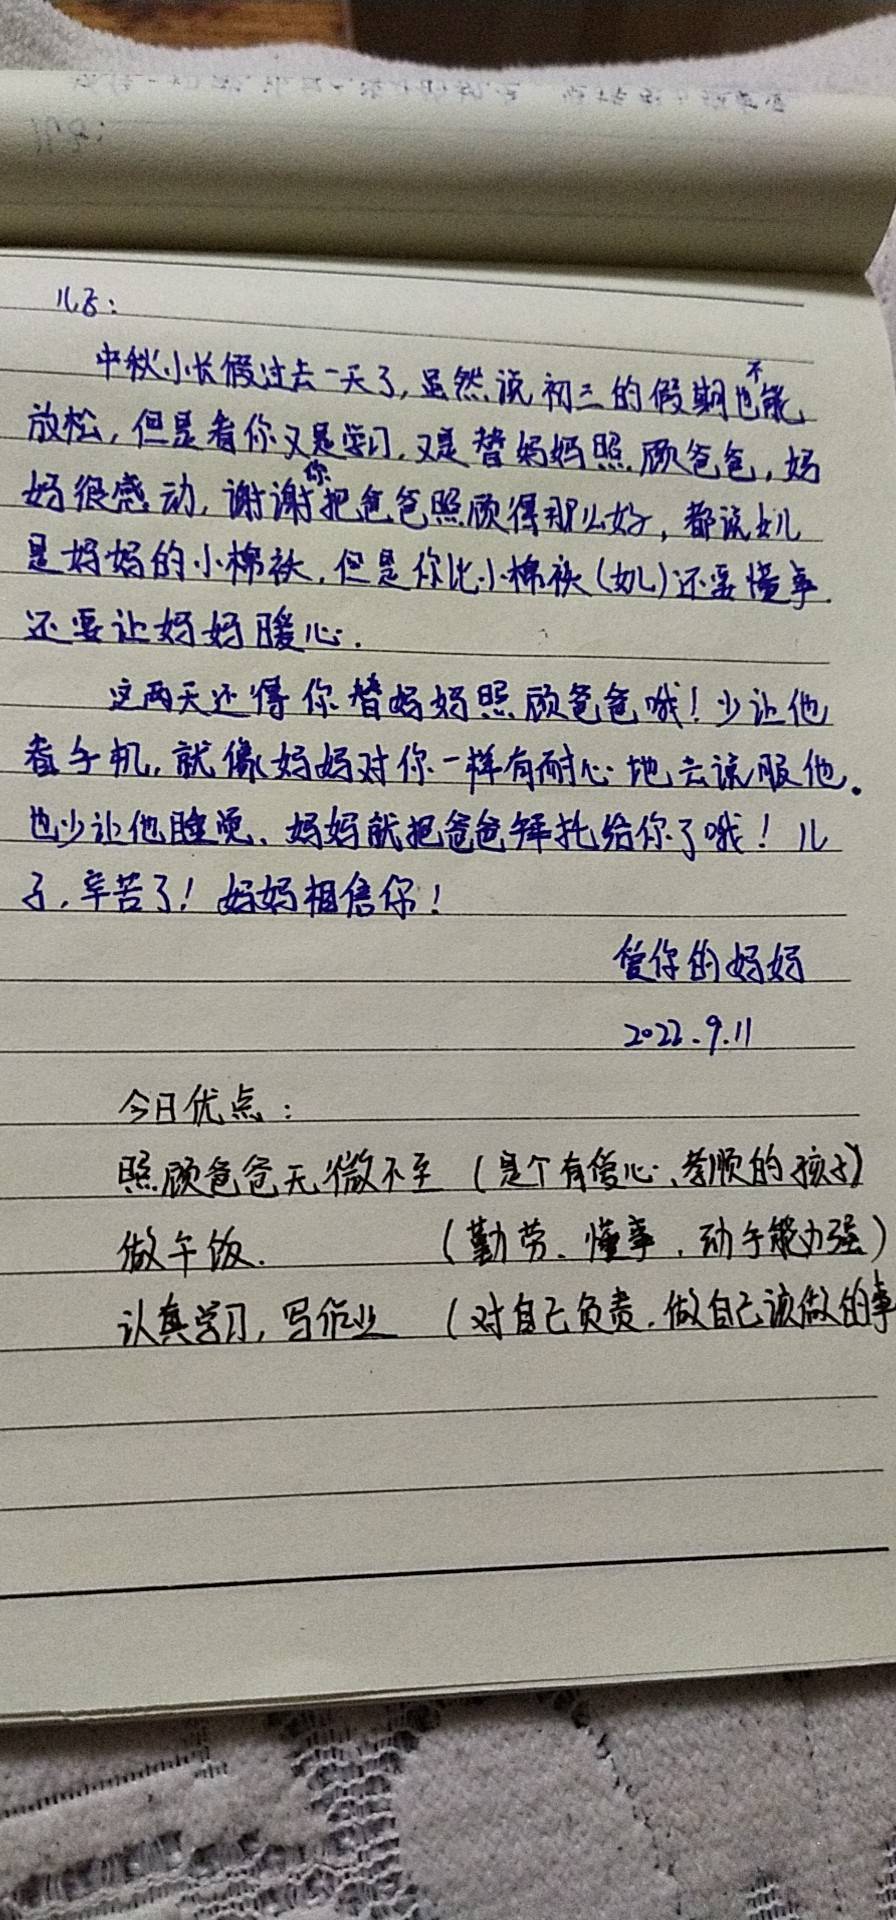 儿子：
中秋小长假过去一天了，虽然说初三的假期也不能
放松，但是看你又是学习，又是替妈妈照顾爸爸，妈
妈很感动，谢谢你把爸爸照顾得那么好，都说女儿
是妈妈的小棉袄，但是你比小棉袄（女儿）还要懂事
还要让妈妈暖心．
这两天还得你替妈妈照顾爸爸哦！少让他
看手机，就像妈妈对你一样有耐心地去说服他。
也少让他睡觉、妈妈就把爸爸拜托给你了哦！儿
子，辛苦了！妈妈相信你！
爱你的妈妈
2022.9.11
今日优点：
照顾爸爸无微不至（是个有爱心、孝顺的孩子）
做午饭．（勤劳、懂事、动手能力强）
认真学习，写作业（对自己负责．做自己该做的事